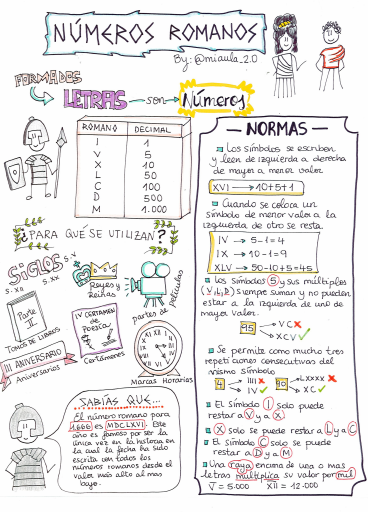 NÚMEROS ROMANOS
By: @miaula_2.0
FORMADOS
LETRAS son Números
ROMANO DECIMAL
I 1
V 5
X 10
L 50
C 100
D 500
M 1.000
¿PARA QUÉ SE UTILIZAN?
SIGLOS
S. V
S. XX
S. X
Reyes y
reinas
partes de películas
Parte
II
TOMOS DE LIBROS
IV CERTAMEN
DE
POESÍA
Certámenes
III ANIVERSARIO
Aniversarios
XII I II III IV V VI VII VIII IX X XI
Marcas Horarias
SABÍAS QUE...
El número romano para
1.666 es MDCLXVI. Este
año es famoso por ser la
única vez en la historia en
la cual la fecha ha sido
escrita con todos los
números romanos desde el
valor más alto al más
bajo.
NORMAS
Los símbolos se escriben
y leen de izquierda a derecha
de mayor a menor valor.
XVI → 10+5+1
Cuando se coloca un
símbolo de menor valor a la
izquierda de otro se resta.
IV → 5-1=4
IX → 10-1=9
XLV → 50-10+5=45
Los símbolos 5 y sus múltiples
(V, L, D) siempre suman y no pueden
estar a la izquierda de uno de
mayor valor.
95 → VC X
→ XCV ✓
Se permite como mucho tres
repeticiones consecutivas del
mismo símbolo
4 → IIII X 90 → LXXXX X
→ IV ✓ → XC ✓
El símbolo I solo puede
restar a V y a X
X solo puede restar a L y a C
El símbolo C solo puede
restar a D y a M
Una raya encima de una o más
letras multiplica su valor por mil
V̅ = 5.000 X̅I̅I̅ = 12.000